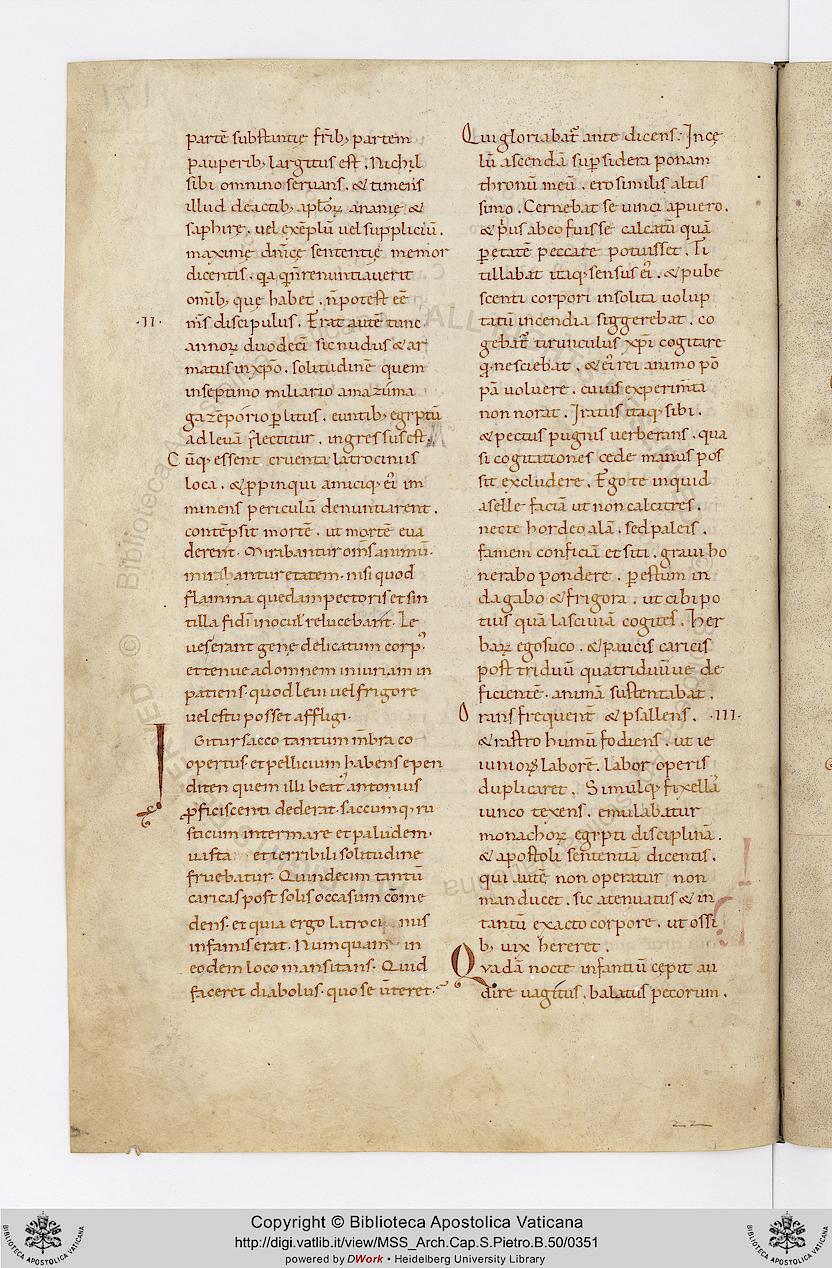 partē substantię fr̄ib; partem
pauperib; largitus est. Nichil
sibi omnino seruans. & timens
illud deactib; apl̄oꝝ ananię &
saphirę. uel exēplū uel suppliciū.
maximę dn̄icę sententię memor
dicentis. q̄a qn̄renuntiauerit
om̄ib; quę habet. n̄potest eē
m̄s discipulus. Erat autē tunc
·II·
annoꝝ duodecī sic nudus & ar
matus inxp̄o. solitudinē quem
inseptimo miliario amazūma
gazēpōrio ꝑlitus. euntib; egyptū
adleuā flectitur. ingressus est.
Cūq; essent cruenta latrociniis
loca. & ꝓpinqui amiciq; eī im
minens periculū denuntiarent.
contēpsit mortē. ut mortē eua
derent. Mirabantur om̄s animū.
mirabantur etatem. nisi quod
flamma quedam pectoris et sin
tilla fidī in ocul' relucebant. Le
ues erant genę delicatum corp'
et tenue ad omnem iniuriam in
patiens. quod leui uel frigore
uel estu posset affligi.
Igitur sacco tantum m̄bra co
opertus. et pellicium habens epen
diten quem illi beat' antonius
ꝓficiscenti dederat. saccumq; ru
sticum inter mare et paludem.
uasta et terribili solitudine
fruebatur. Quindecim tantū
caricas post solis occasum cōme
dens. et quia ergo latroci nus
infamis erat. Numquam in
eodem loco mansitans. Quid
faceret diabolus. quo se ūteret.
Qui gloriabat̄ ante dicens. In cę
lū ascendā sup sidera ponam
thronū meū. ero similis altis
simo. Cernebat se uinci apuero.
& p̄us abeo fuisse calcatū quā
ꝑ etatē peccare potuisset. Ti
tillabat itaq; sensus eī. & pube
scenti corpori insolita uolup
tatū incendia suggerebat. co
gebat̄ tirunculus xp̄i cogitare
q; nesciebat. & eī rei animo pō
pā uoluere. cuius experim̄ta
non norat. Iratus itaq; sibi.
& pectus pugnis uerberans. qua
si cogitationes cede manus pos
sit excludere. Ego te inquid
aselle faciā ut non calcitres.
necte hordeo alā. sed paleis.
famem conficiā et siti. graui ho
nerabo pondere. ꝑ estum in
dagabo & frigora. ut cibi po
tius quā lasciuiā cogites. Her
baꝝ ego suco. & paucis caricis
post triduū quatriduūue de
ficientē. animā sustentabat.
Orans frequent̄ & psallens. ·III·
& rastro humū fodiens. ut ie
iunioꝝ laborē. labor operis
duplicaret. Simulq; fixellā
iunco texens. emulabatur
monachoꝝ egypti disciplinā.
& apostoli sententiā dicentis.
qui autē non operatur non
manducet. sic atenuatus & in
tantū exacto corpore. ut ossi
b; uix hereret.
Quadā nocte infantiū cępit au
dire uagitus. balatus pecorum.
22
Copyright © Biblioteca Apostolica Vaticana
http://digi.vatlib.it/view/MSS_Arch.Cap.S.Pietro.B.50/0351
powered by DWork • Heidelberg University Library
BIBLIOTECA APOSTOLICA VATICANA
BIBLIOTECA APOSTOLICA VATICANA